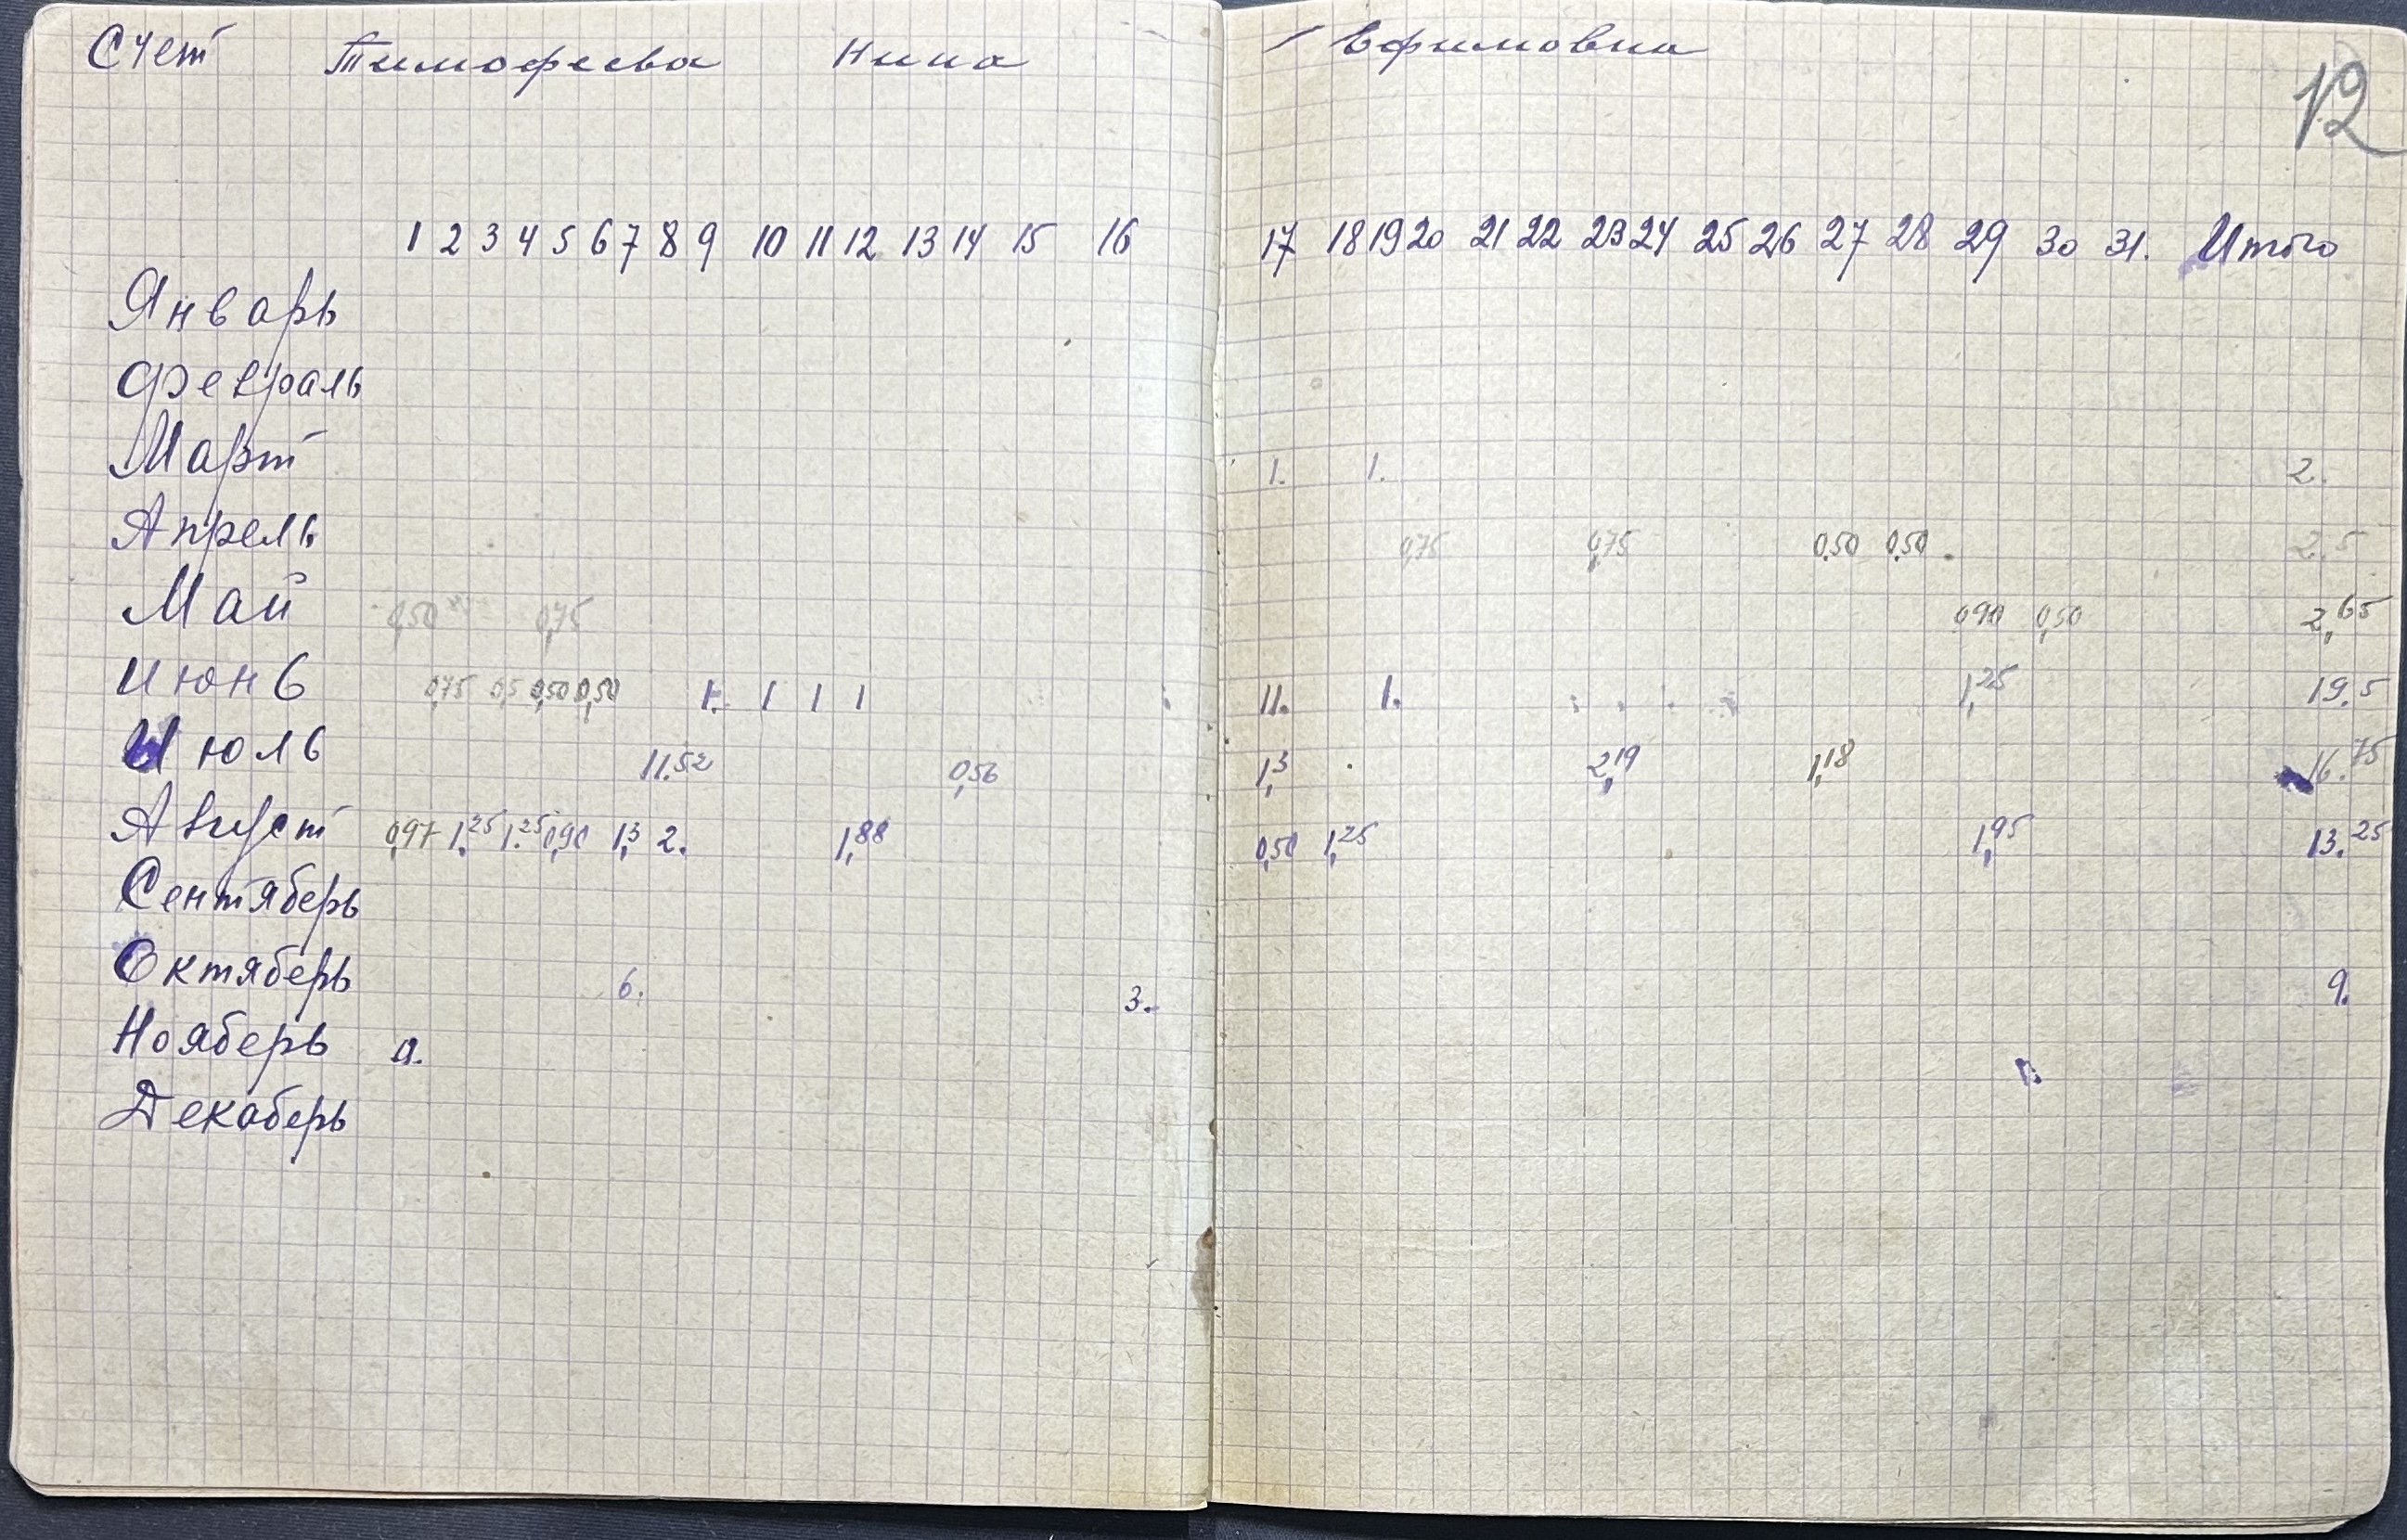 Счет Тимофеева Нина Ефимовна
12
1 2 3 4 5 6 7 8 9 10 11 12 13 14 15 16 17 18 19 20 21 22 23 24 25 26 27 28 29 30 31. Итого
Январь
Февраль
Март 1. 1. 2.
Апрель 0,75 0,75 0,50 0,50 2,5
Май 0,50 0,75 0,90 0,50 2,65
Июнь 0,75 0,5 0,50 0,50 1. 1 1 1 11. 1. 1,25 19.5
Июль 11.52 0,56 1,3 2,19 1,18 16.75
Август 0,97 1.25 1.25 0,90 1,3 2. 1,88 0,50 1,25 1,95 13.25
Сентяберь
Октяберь 6. 3. 9.
Нояберь
Декаберь